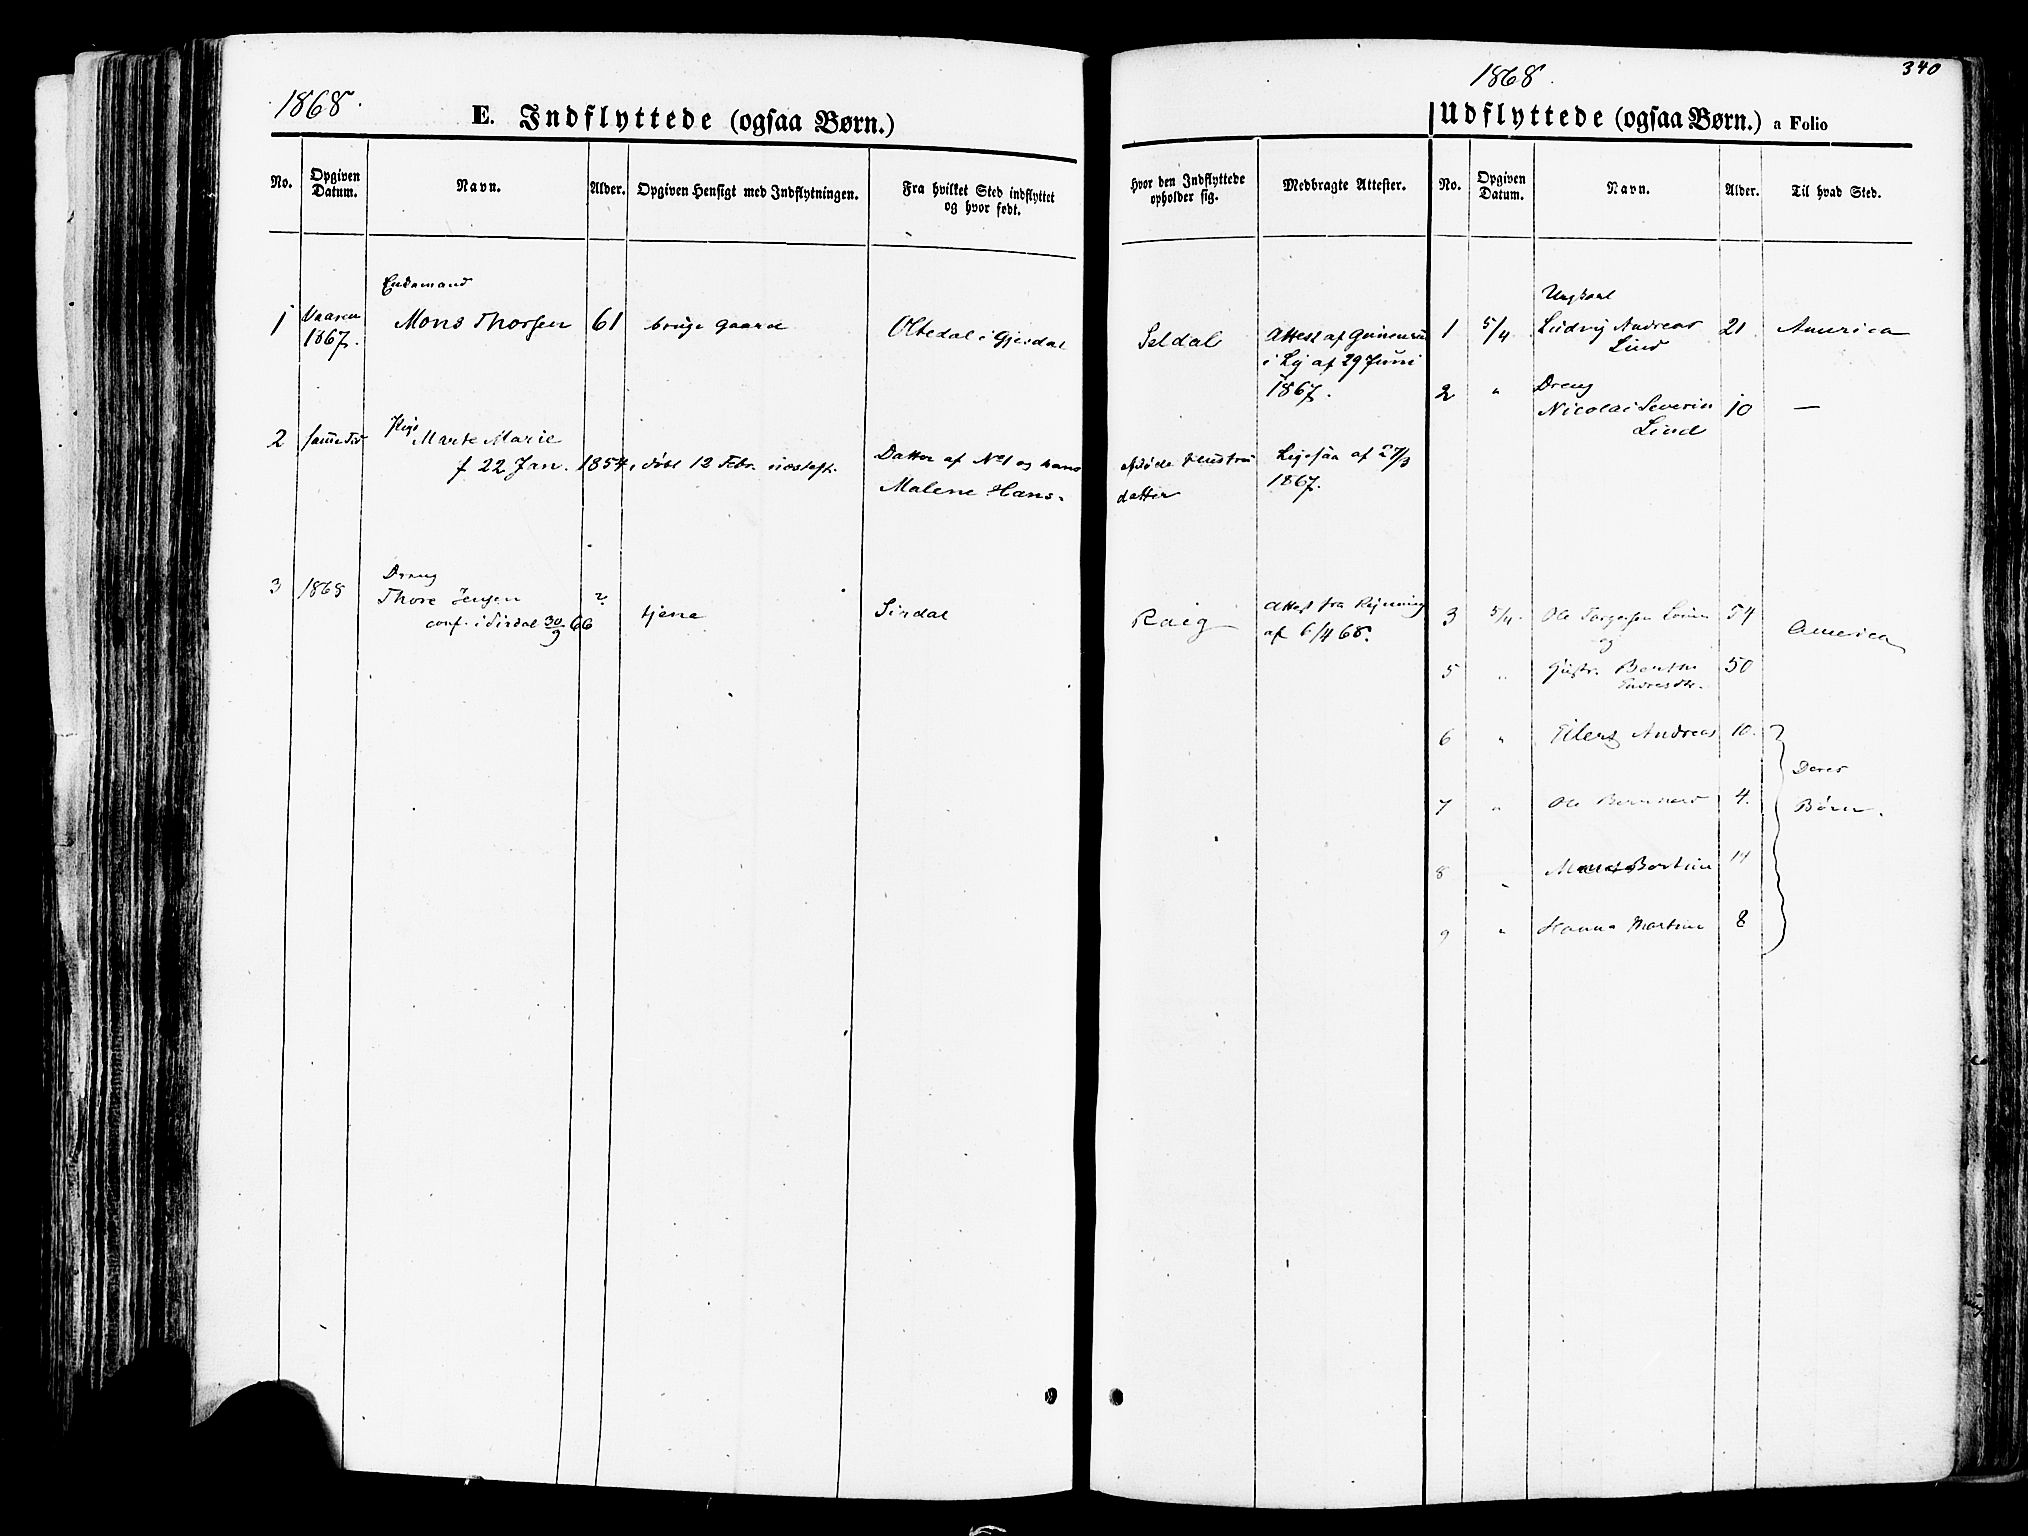 1868.
E. Indflyttede (ogsaa Børn.)
No.
Opgiven Datum.
Navn.
Alder.
Opgiven Hensigt med Indflytningen.
Fra hvilket Sted indflyttet
og hvor født.
Enkemand
1 Vaaren Mons Thorsen 61 bruge gaard Oltedal i Gjesdal
1867.
2 samme Tid Pige Marte Marie
f 22 Jan. 1854, døbt 12 Febr. næsteft.
Datter af No1 og hans
Malene Hans-
Dreng
3 1868 Thore Jensen ? tjene Sirdal
conf. i Sirdal 30/9 66
1868.
340
Udflyttede (ogsaa Børn.) a Folio
Hvor den Indflyttede
opholder sig.
Medbragte Attester.
No.
Opgiven
Datum.
Navn.
Alder.
Til hvad Sted.
Seldal
Attest af
i Ly af 29 Juni
1867.
afdøde Hustru
datter
Ligesaa af 27/3
1867.
Attest fra
af 6/4 68.
Ungkarl
1 5/4 Ludvig Andreas 21 America
Lind
Dreng
2 " Nicolai Severin 10 —
Lind
3 5/4. Ole 54 America
og
5 " Hustr. 50
Endresdtr.
6 " Eilert Andreas 10.
7 " Ole 4.
8 " Bertine 14
9 " Hanna Martine 8
Deres
Børn.